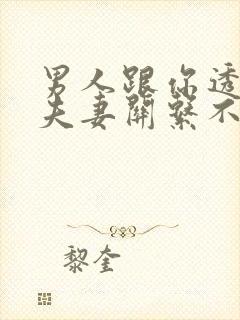 男人跟你透
夫妻關繫不
黎奎